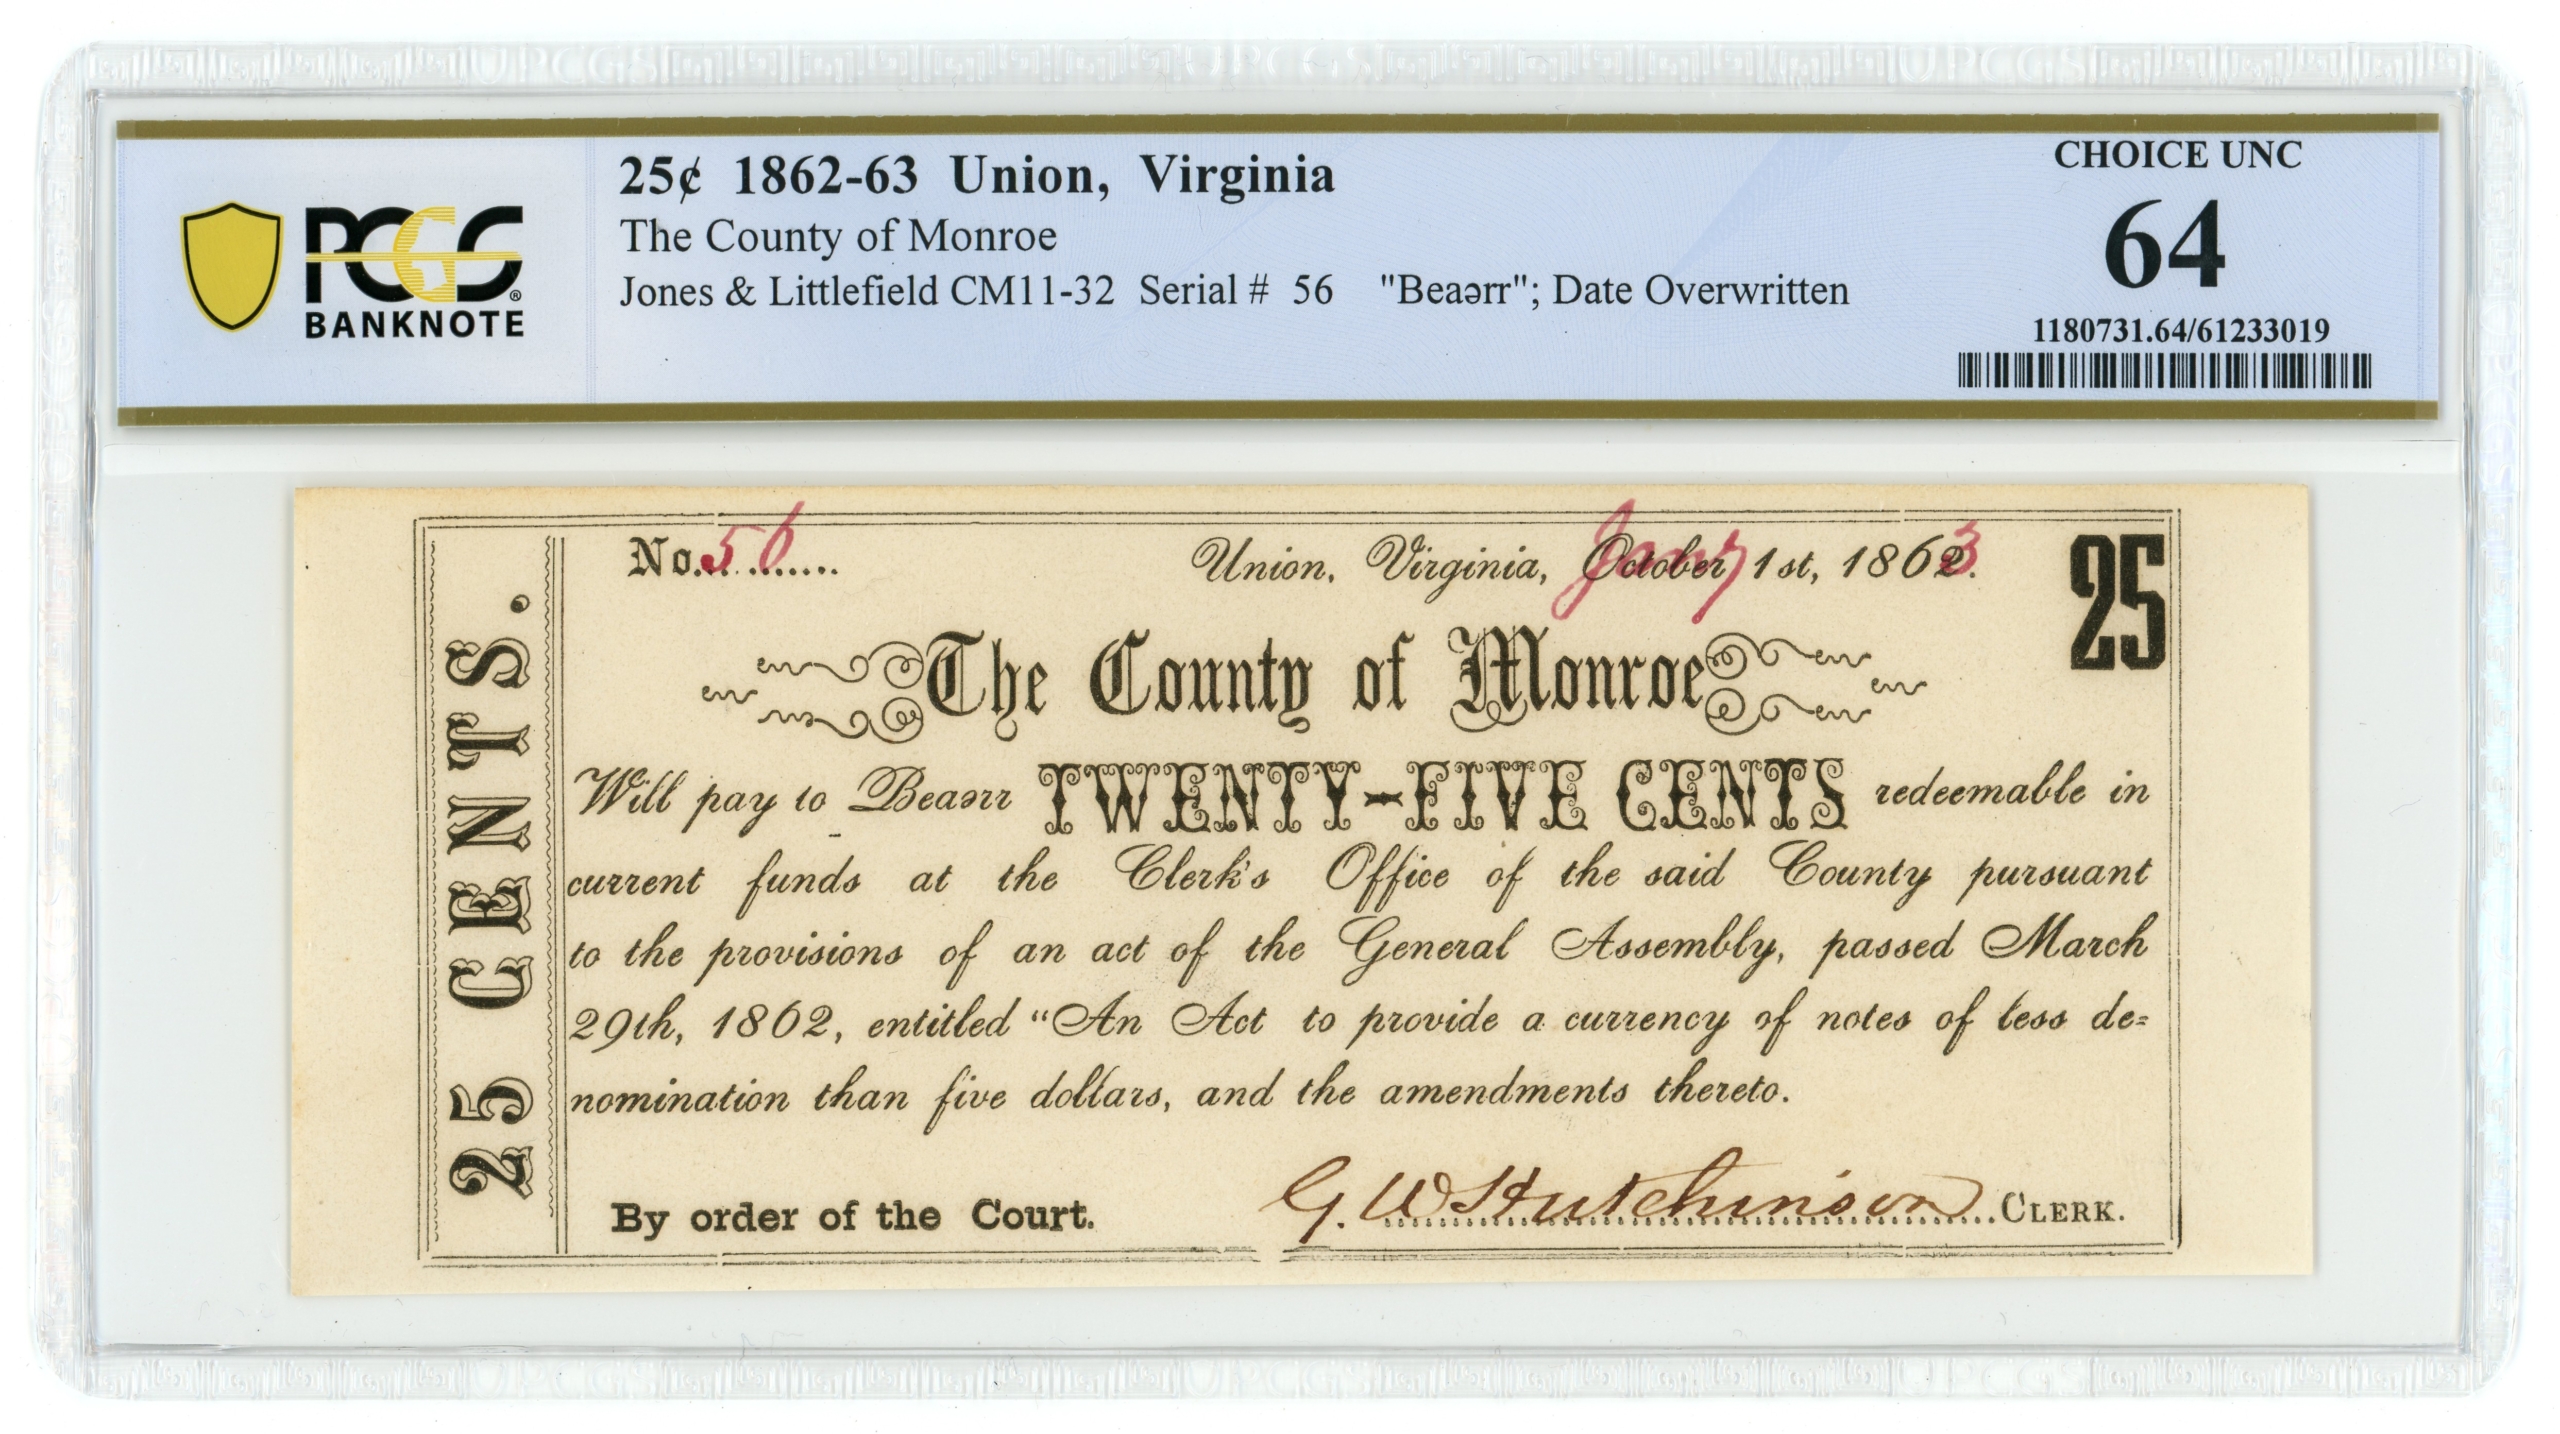 PCGS
BANKNOTE
25¢ 1862-63 Union, Virginia
The County of Monroe
Jones & Littlefield CM11-32 Serial # 56 "Beaǝrr"; Date Overwritten
CHOICE UNC
64
1180731.64/61233019
25 CENTS.
No. 56
Union, Virginia, October 1st, 1862.
Jany 3
25
The County of Monroe
Will pay to Beaǝrr TWENTY-FIVE CENTS redeemable in
current funds at the Clerk's Office of the said County pursuant
to the provisions of an act of the General Assembly, passed March
29th, 1862, entitled "An Act to provide a currency of notes of less de=
nomination than five dollars, and the amendments thereto.
By order of the Court.
G. W Hutchinson CLERK.